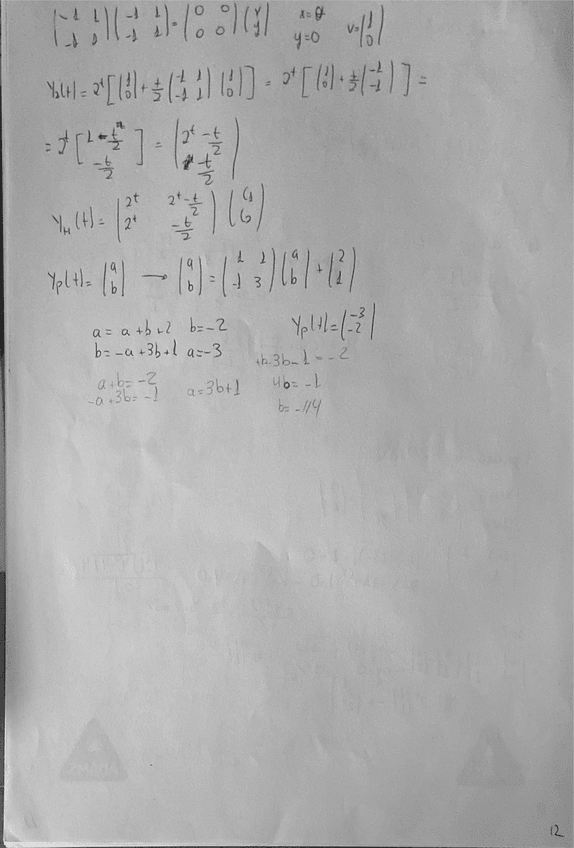 (-1 1 / -1 1)(-1 1 / -1 1) = (0 0 / 0 0)(x / y) x=0 y=0 v=(1 / 0)
Y₂(t) = 2^t [(1 / 0) + t/2 (-1 1 / -1 1)(1 / 0)] = 2^t [(1 / 0) + t/2 (-1 / -1)] =
= 2^t [1 - t/2 / -t/2] = (2^t - t/2 / -t/2)
Y_H(t) = (2^t 2^t - t/2 / 2^t -t/2)(C₁ / C₂)
Yp(t) = (a / b) → (a / b) = (1 1 / -1 3)(a / b) + (2 / 1)
a = a + b + 2 b = -2 Yp(t) = (-3 / -2)
b = -a + 3b + 1 a = -3
+b 3b - 1 = -2
a + b = -2
-a + 3b = -1 a = 3b + 1 4b = -1
b = -1/4
12